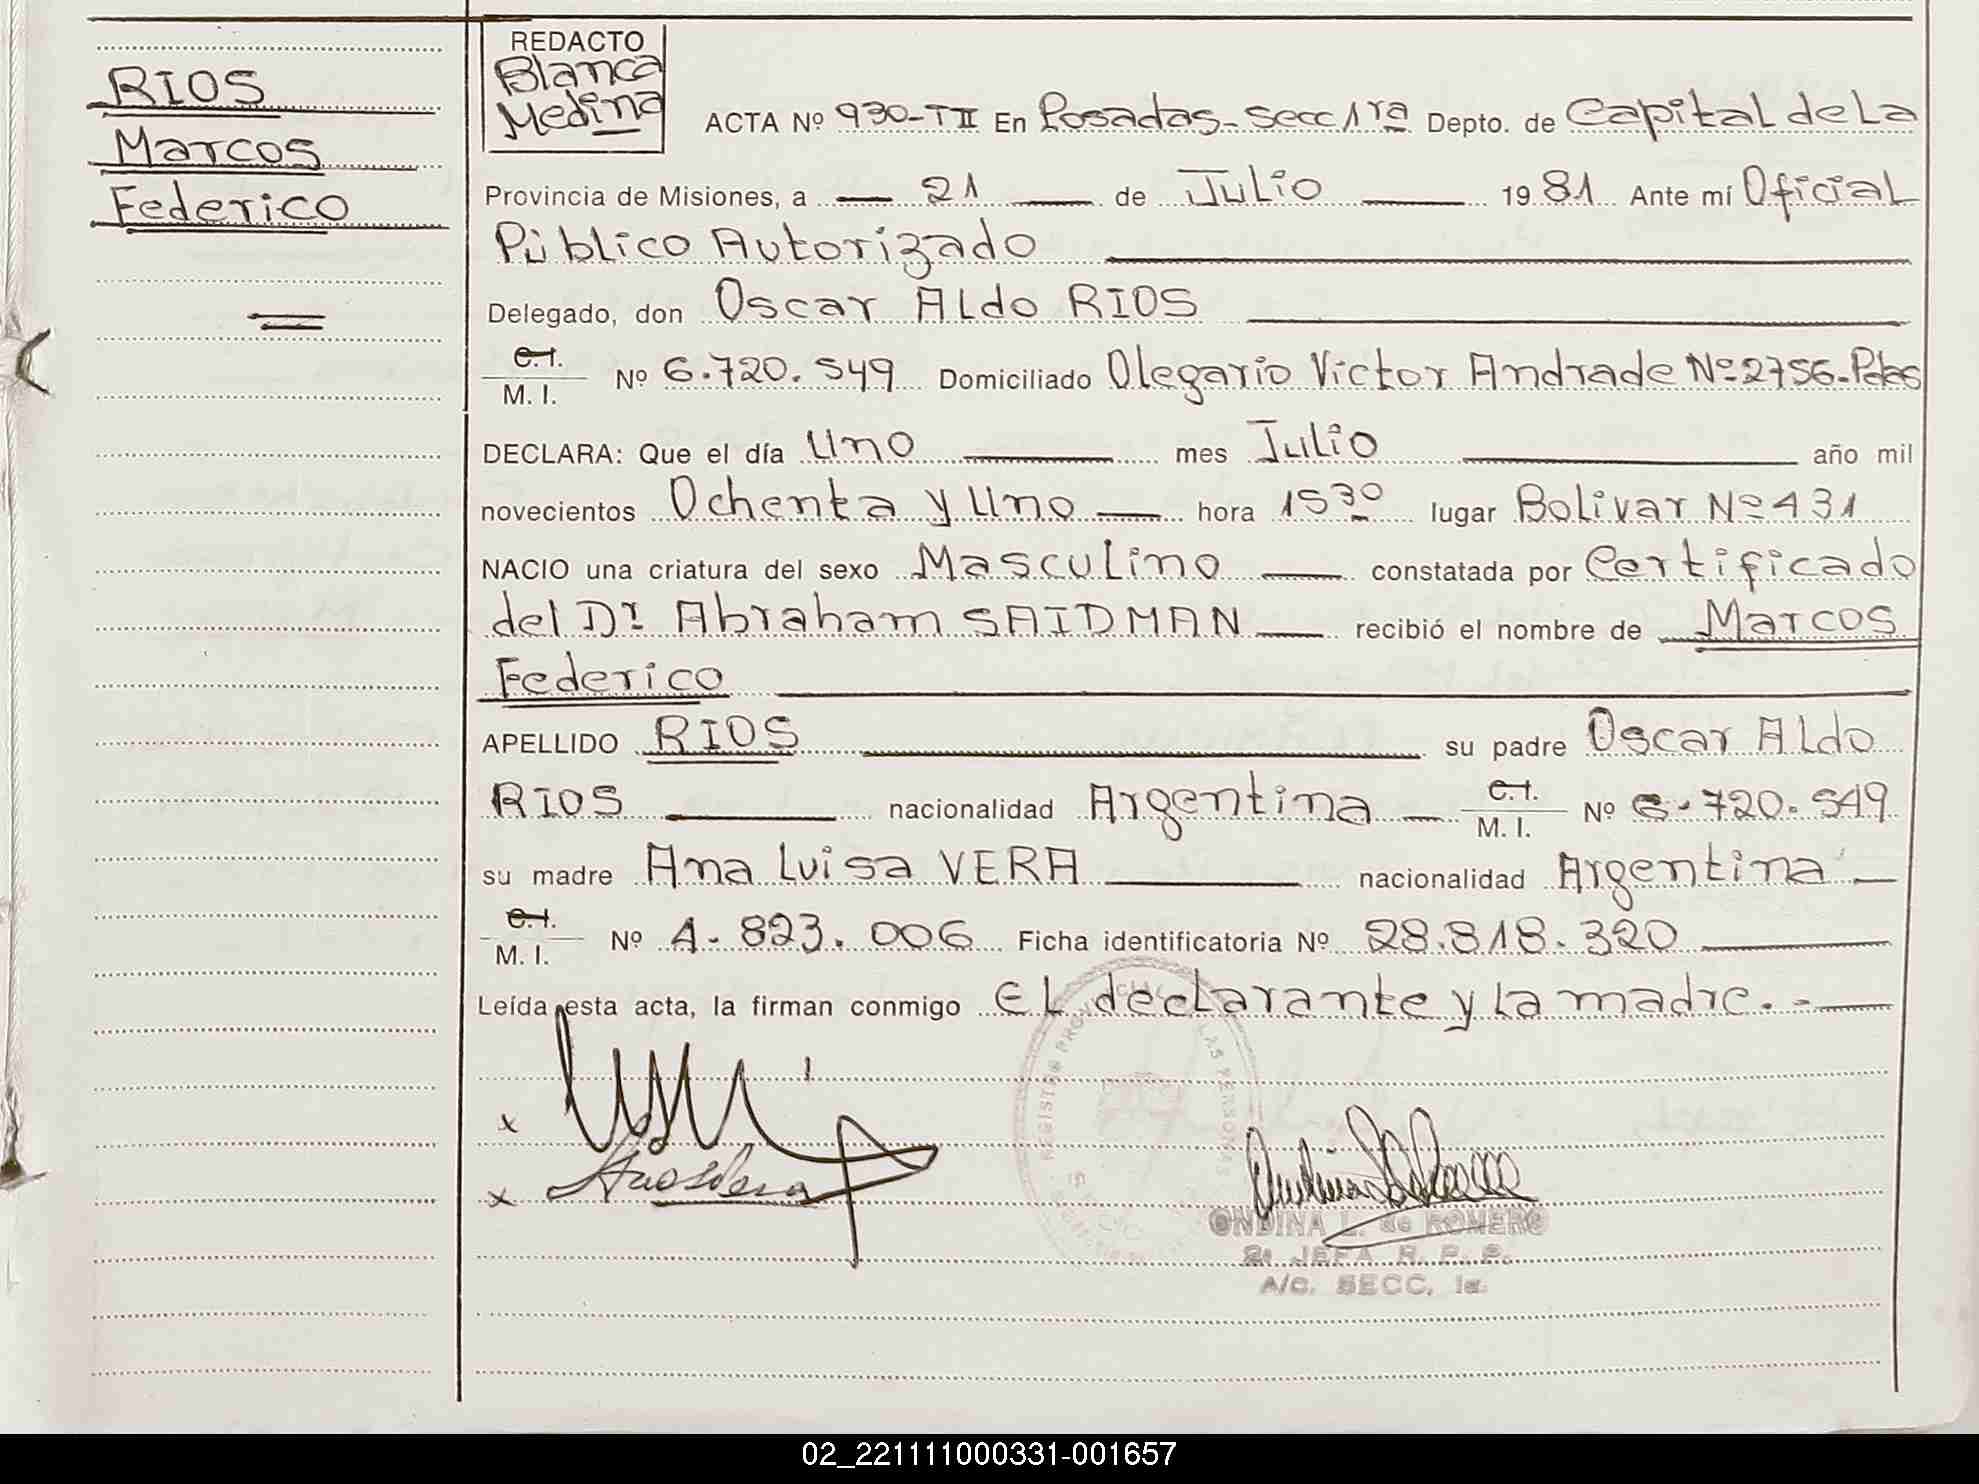 RIOS
Marcos
Federico
REDACTO
Blanca
Medina
ACTA Nº 930-TII En Posadas-Secc 1ra Depto. de Capital de La
Provincia de Misiones, a 21 de Julio 1981 Ante mí Oficial
Público Autorizado
Delegado, don Oscar Aldo RIOS
C.I.
M. I. Nº 6.720.549 Domiciliado Olegario Victor Andrade Nº 2756-Pdas
DECLARA: Que el día Uno mes Julio año mil
novecientos Ochenta y Uno hora 15 30 lugar Bolivar Nº 431
NACIO una criatura del sexo Masculino constatada por Certificado
del Dr. Abraham SAIDMAN recibió el nombre de Marcos
Federico
APELLIDO RIOS su padre Oscar Aldo
RIOS nacionalidad Argentina C.I. M. I. Nº 6.720.549
su madre Ana Luisa VERA nacionalidad Argentina
C.I.
M. I. Nº 4.823.006 Ficha identificatoria Nº 28.818.320
Leída esta acta, la firman conmigo EL declarante y La madre.-
x
x
REGISTRO PROVINCIAL LAS PERSONAS
ONDINA L. de ROMERO
2a JEFA R. P. P.
A/C. SECC, 1a.
02_221111000331-001657